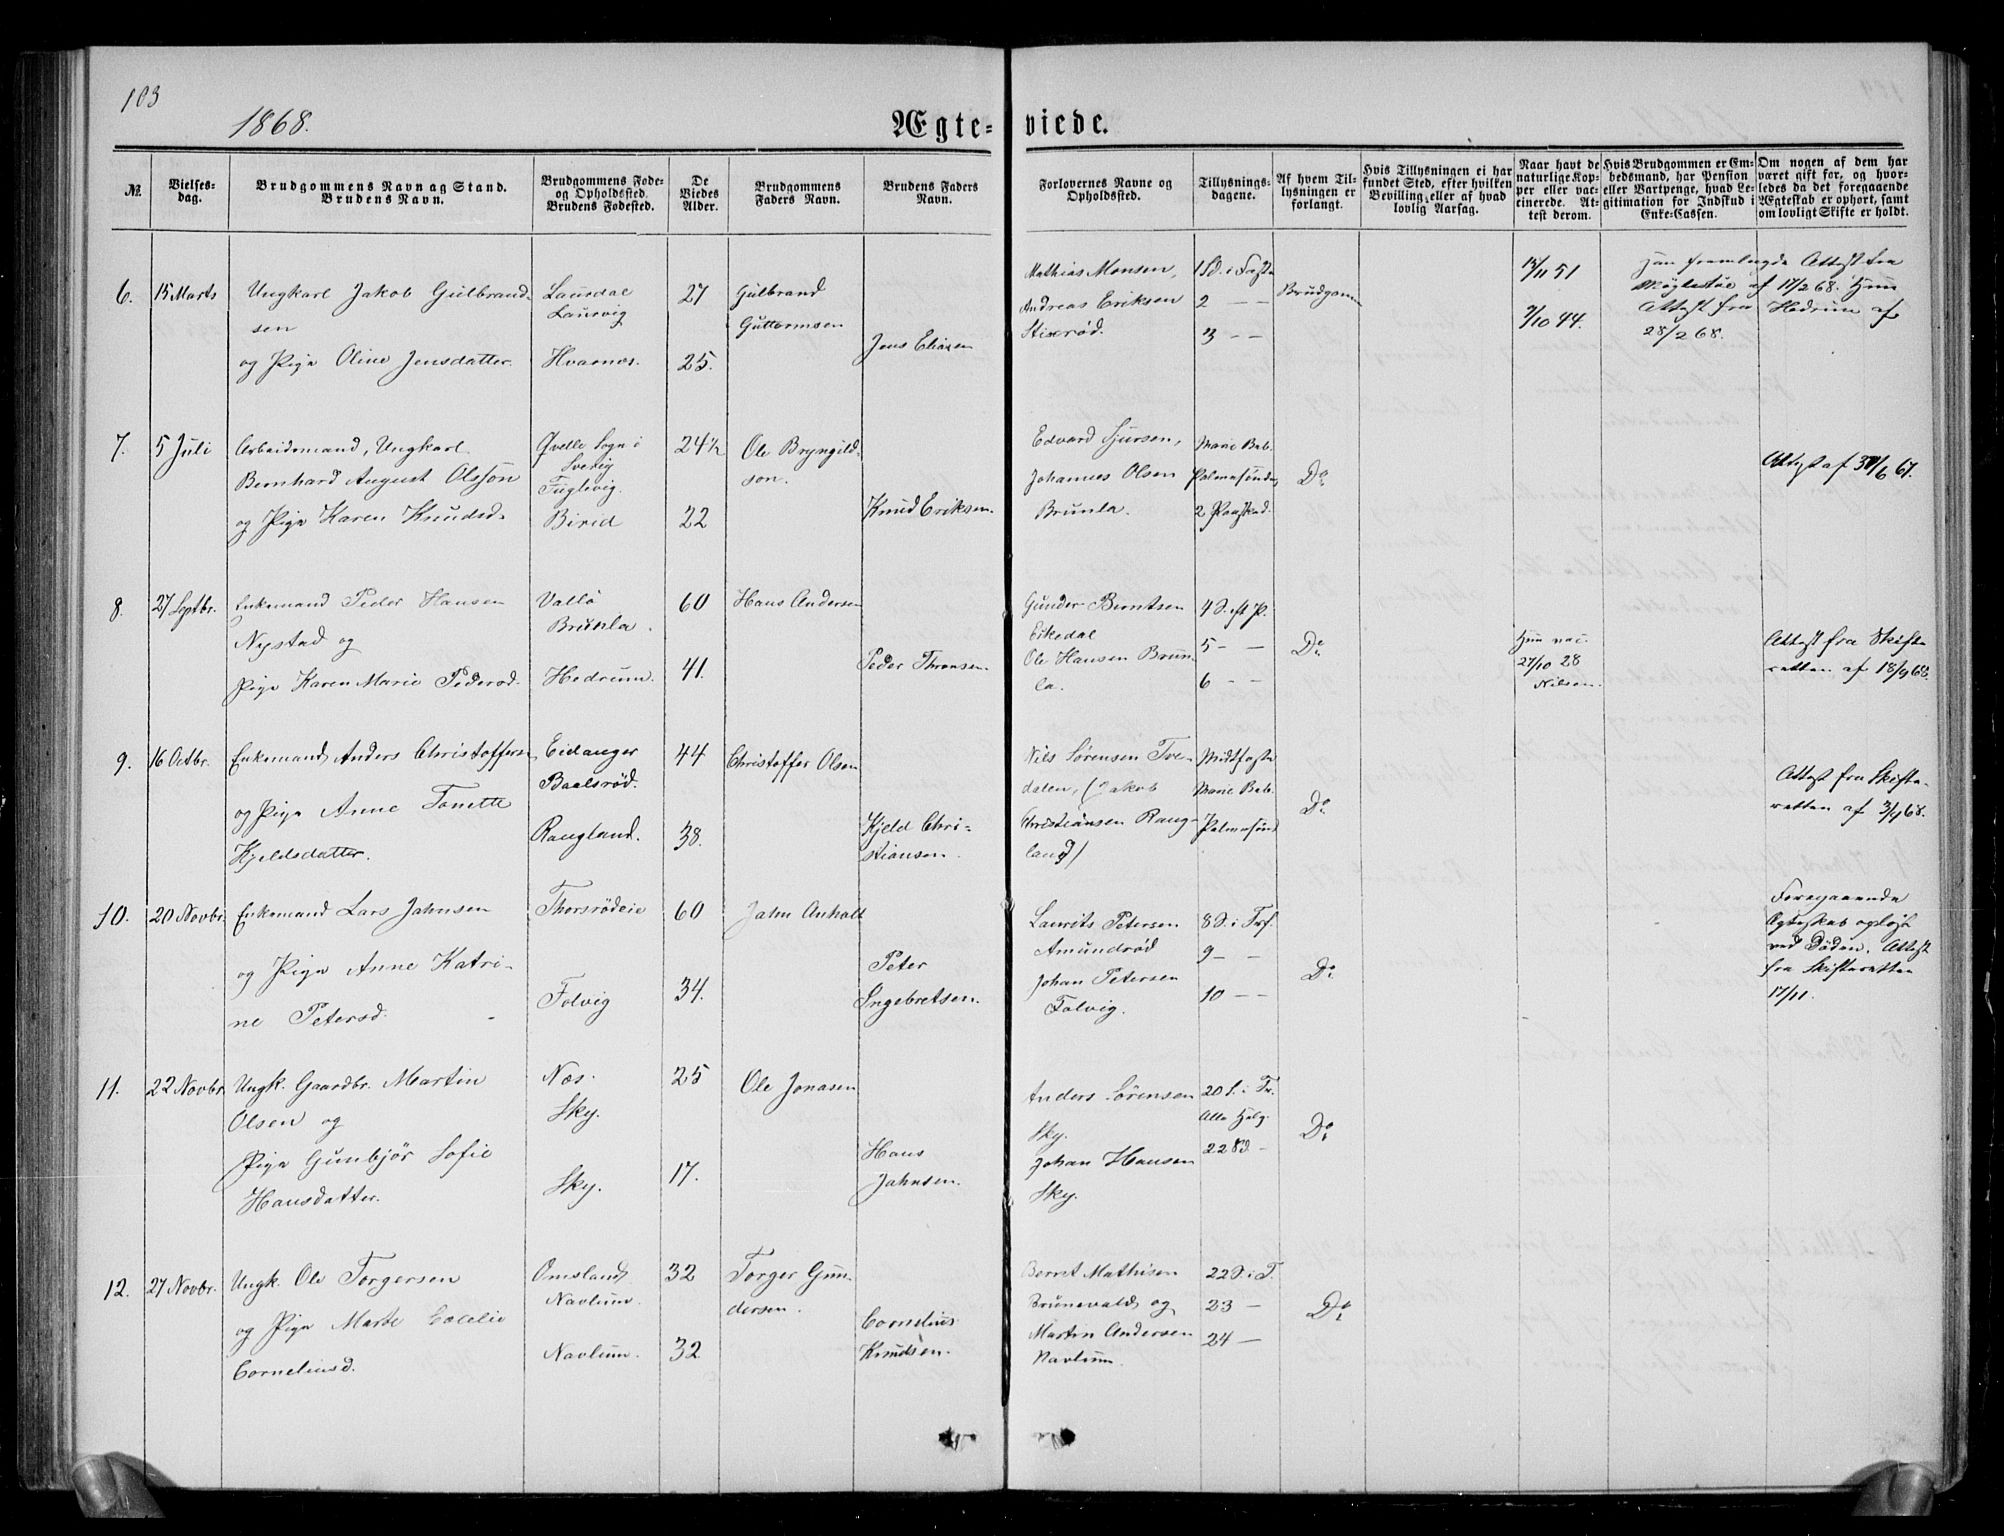 103
1868.
Ægte-viede.
№
Vielses-dag.
Brudgommens Navn ag Stand. Brudens Navn.
Brudgommens Føde- og Opholdsted. Brudens Fødested.
De Viedes Alder.
Brudgommens Faders Navn.
Brudens Faders Navn.
Forlovernes Navne og Opholdsted.
Tillysnings-dagene.
Af hvem Tillysningen er forlangt.
Hvis Tillysningen ei har fundet Sted, efter hvilken Bevilling, eller af hvad lovlig Aarsag.
Naar havt de naturlige Kopper eller vaccinerede. Attest derom.
Hvis Brudgommen er Embedsmand, har Pension eller Vartpenge, hvad Legitimation for Indskud i Enke-Cassen.
Om nogen af dem har været gift før, og hvorledes da det foregaaende Ægteskab er ophørt, samt om lovligt Skifte er holdt.
6. 15 Marts Ungkarl Jakob Gulbrand-
sen
og Pige Oline Jensdatter.
Lausdal
Laurvig
Hvarnes.
27
25.
Gulbrand
Guttormsen
Jens Eliasen
Mathias Monsen,
Andreas Eriksen
Stixrød.
1 Sd. i Faste
2 — —
3 — —
Brudgom
15/11 51
3/10 44.
Han fremlagde Attest fra
af 17/2 68. Hun
Attest fra Hedrum af
28/2 68.
7. 5 Juli Arbeidsmand, Ungkarl
Bernhard August Olsson
og Pige Karen Knudsd.
Qvelle Sogn i
Sverig
Fuglevig.
Birid
24½
22
Ole Bryngild-
son.
Knud Eriksen.
Edvard Sjursen,
Johannes Olsen
Brunla.
Marie Beb.
Palmesøndag
2 Paasked.
Do
Attest af 30/6 67.
8. 27 Septbr. Enkemand Peder Hansen
Nystad og
Pige Karen Marie Pedersd.
Vallø
Brunla.
Hedrum.
60
41.
Hans Andersen
Peder Thronsen.
Gunder Berntsen
Eikedal
Ole Hansen Brun-
la.
4 S. eft P.
5 — —
6 — —
Do
Hun vac.
27/10 28
Nilsen.
Attest fra Skifte-
retten af 18/9 68.
9. 16 Octbr. Enkemand Anders Christoffersen
og Pige Anne Tonette
Kjeldsdatter.
Eidanger
Baalsrød.
Raugland.
44
38.
Christoffer Olsen
Kjeld Chri-
stiansen.
Nils Sørensen Tve-
dalen, (Jakob
Christiansen Raug-
land)
Midtfaste
Marie Beb.
Palmesønd
Do
Attest fra Skifte-
retten af 3/4 68.
10. 20 Novbr. Enkemand Lars Jahnsen
og Pige Anne Katri-
ne Petersd.
Thorsrødeie
Folvig
60
34.
Jahn Anholt
Peter
Ingebretsen.
Laurits Petersen
Amundrød
Johan Petersen
Folvig.
8 S. i Tref.
9 — —
10 — —
Do
Foregaaende
Ægteskab opløst
ved Døden. Attest
fra Skifteretten
17/11.
11. 22 Novbr. Ungk. Gaardbr. Martin
Olsen og
Pige Gunbjør Sofie
Hansdatter.
Næs.
Sky.
Sky.
25
17.
Ole Jonasen
Hans
Jahnsen.
Anders Sørensen
Sky.
Johan Hansen
Sky.
20 S. i Tr.
Alle Helg.
22 Sd. —
Do
12. 27 Novbr. Ungk. Ole Torgersen
og Pige Marte Cecelie
Corneliusd.
Omsland
Navlum.
Navlum.
32
32
Torger Gun-
dersen.
Cornelius
Knudsen.
Bernt Mathisen
Brunevald og
Martin Andersen
Navlum.
22 S. i T.
23 —
24 —
Do